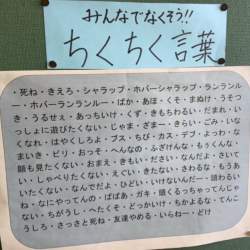 みんなでなくそう!!
ちくちく言葉
・死ね・きえろ・シャラップ・ホバーシャラップ・ランランル
ー・ホバーランランルー・ばか・あほ・くそ・まぬけ・うそつ
き・うるせぇ・あっちいけ・くず・きもちわるい・だまれ・い
っしょに遊びたくない・じゃま・ざまー・きらい・ごみ・いな
くなれ・はやくしろよ・ブス・ちび・カス・デブ・よわっ・な
まいき・ビリ・おっそ・へんなの・ふざけんな・もうくんな・
顔も見たくない・おまえ・きもい・ださい・なんだよ・さいて
い・しゃべりたくない・えぐい・きたない・さわるな・もうあわない・
いたくない・なんでだよ・ひどい・いけないんだー・頭わるい
ね・なにやってんの・ばばあ・ガキ・頭くるっちゃってんじゃ
ないの・ちがうし・へたくそ・どっかいけ・ちかよるな・てんこ
うしろ・さっさと死ね・友達やめる・いらねー・どけ